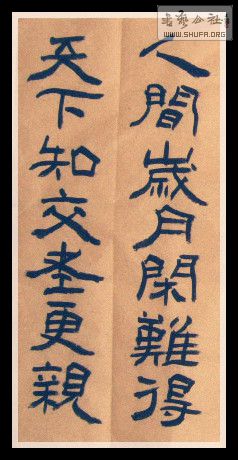 人間歲月閑難得
天下知交老更親
WWW.SHUFA.ORG